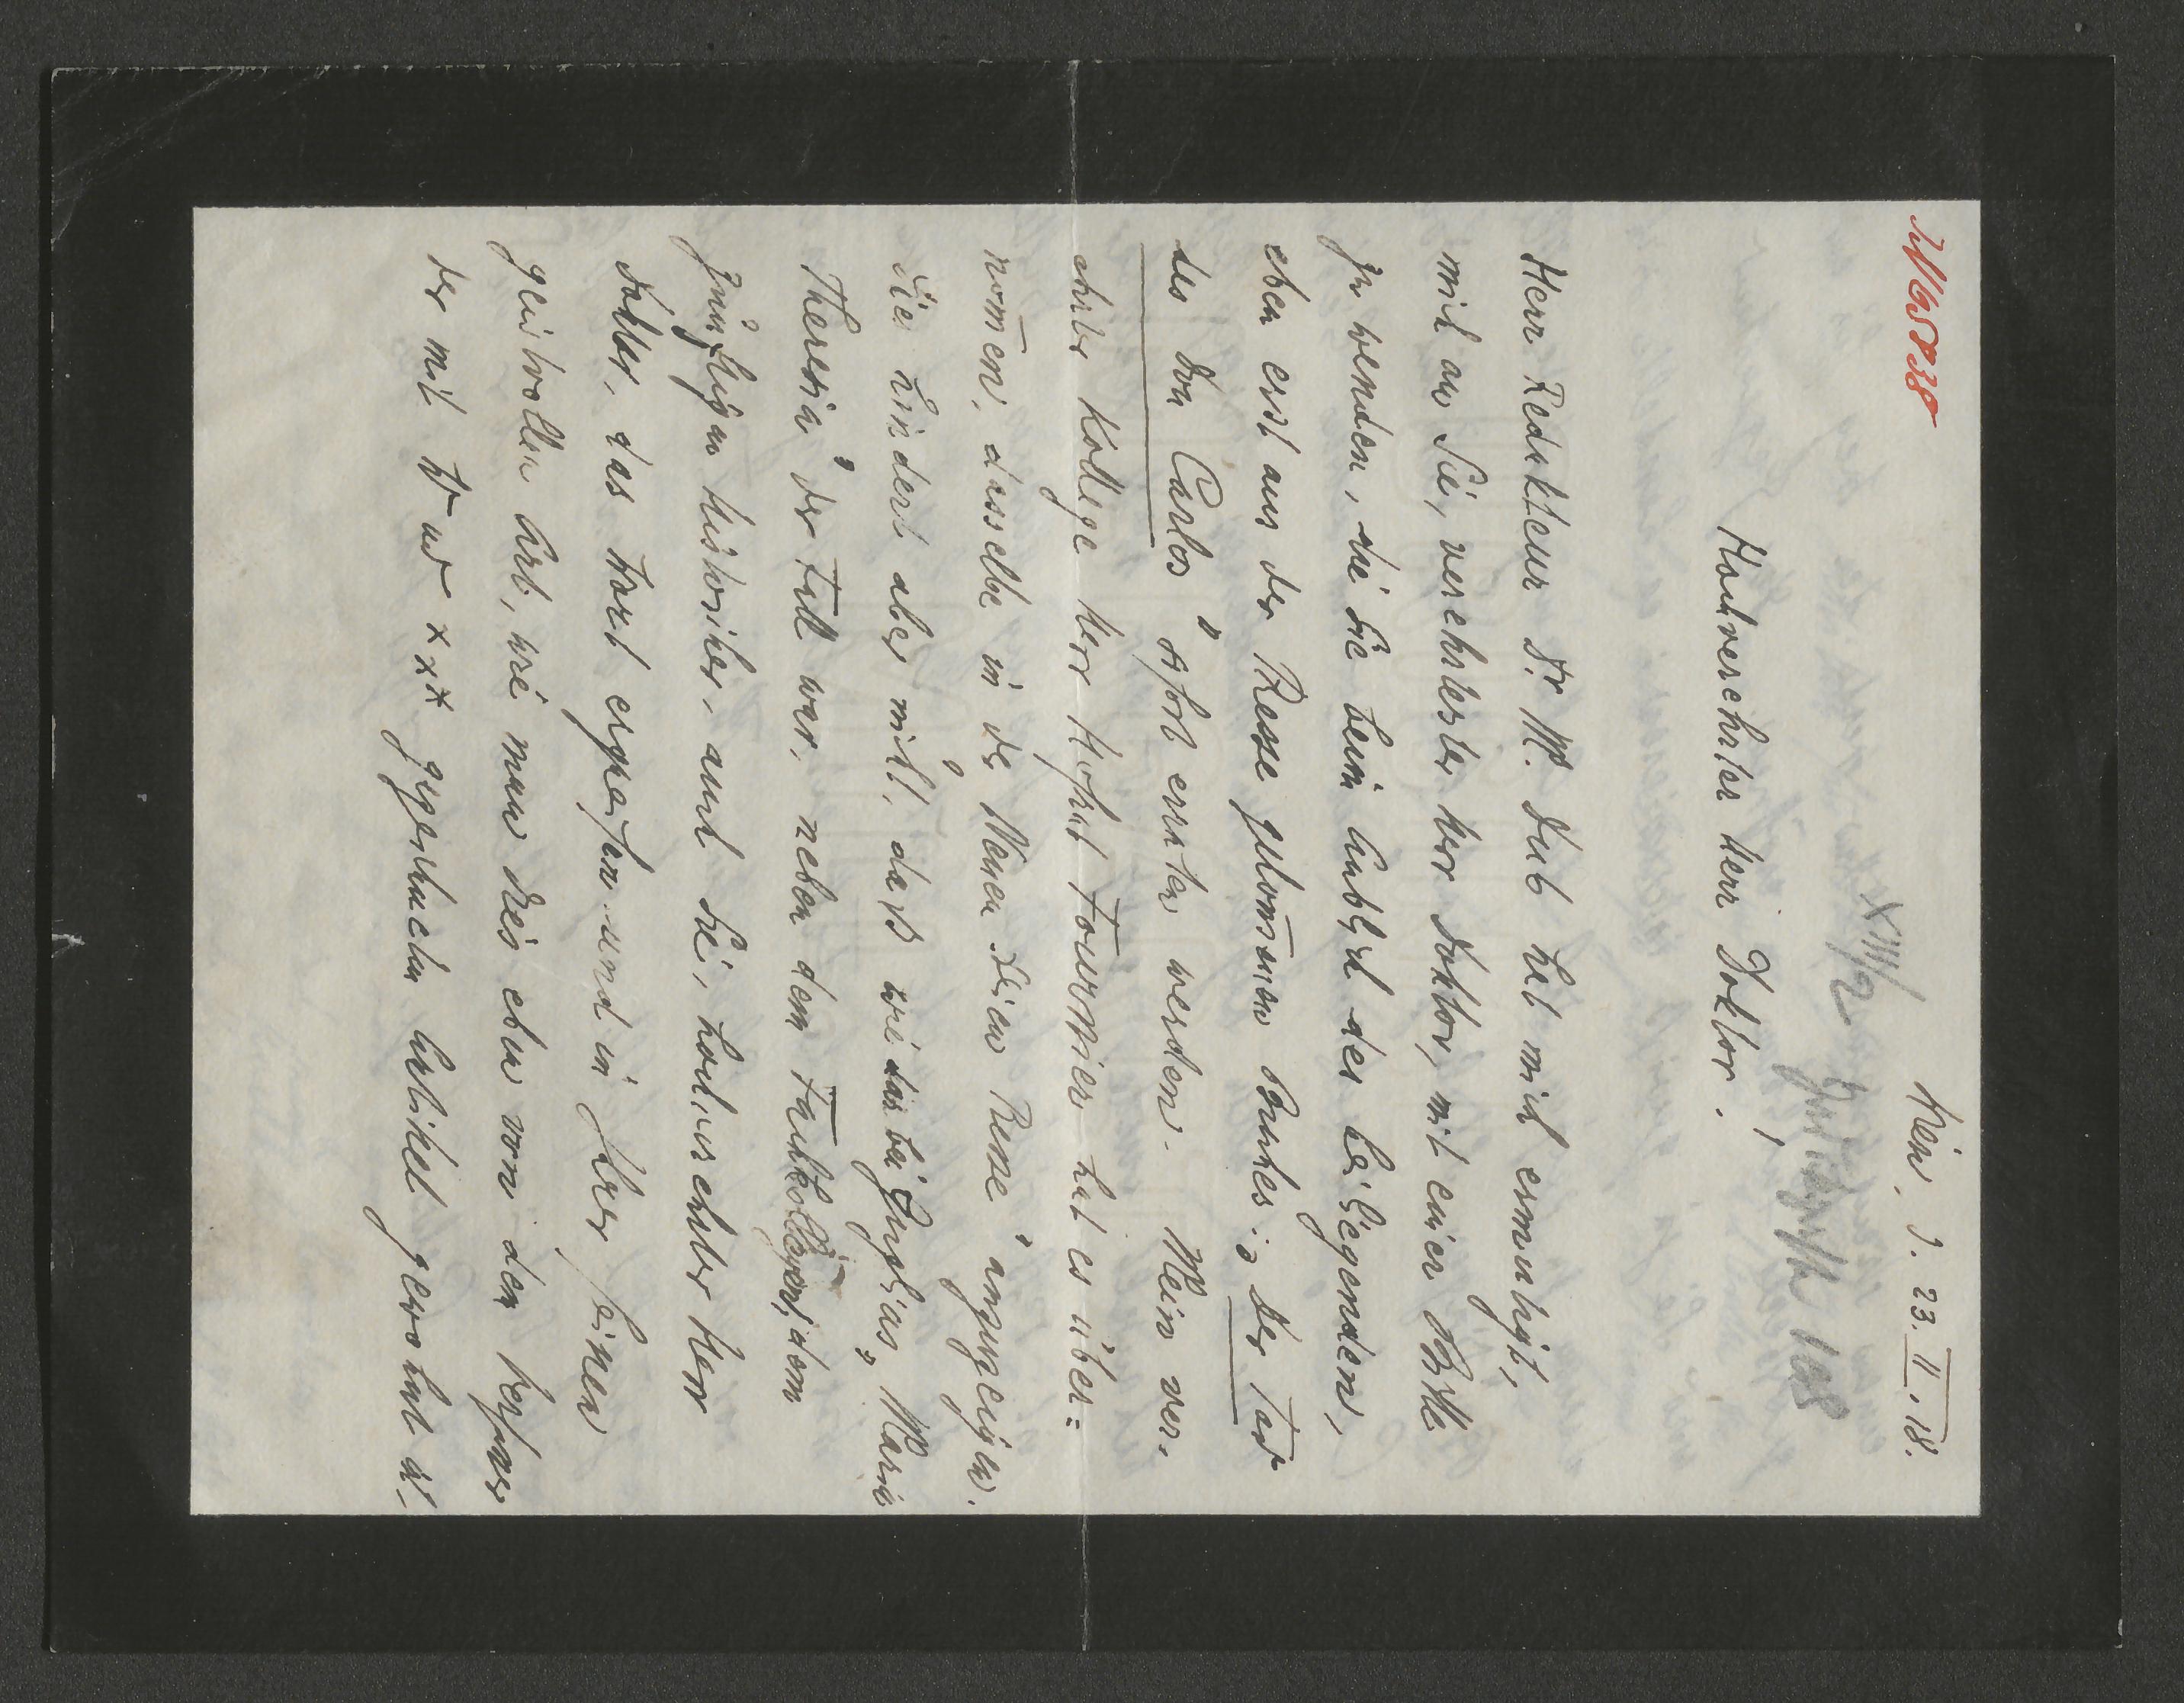 Wien, d. 23. II. 18.
XIII/2
Hochverehrter Herr Doktor!
Herr Redakteur Dr. M. Dub hat mich ermutigt,
mich an Sie, verehrtester Herr Doktor, mit einer Bitte
zu wenden, die Sie beim Anblick des beiliegenden,
eben erst aus der Presse gekom̅enen Buches: „Der Tod
des Don Carlos" sofort erraten werden. Mein ver-
ehrter Kollege Herr Hofrat Fournier hat es über-
nom̅en, dasselbe in der Neuen Freien Presse" anzuzeigen.
Dies hindert aber nicht, daß wie das bei Guglias „Maria
Theresia" der Fall war, neben dem Fachkollegen, dem
zünftigen Historiker, auch Sie, hochverehrter Herr
Doktor, das Wort ergreifen und in Ihrer feinen
geistvollen Art, wie man dies eben von dem Verfasser
der mit W und xxx gezeichneten Artikel gewohnt ist,